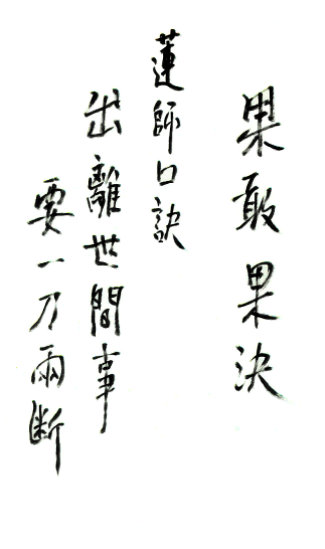 果敢果決
蓮師口訣
出離世間事
要一刀兩断